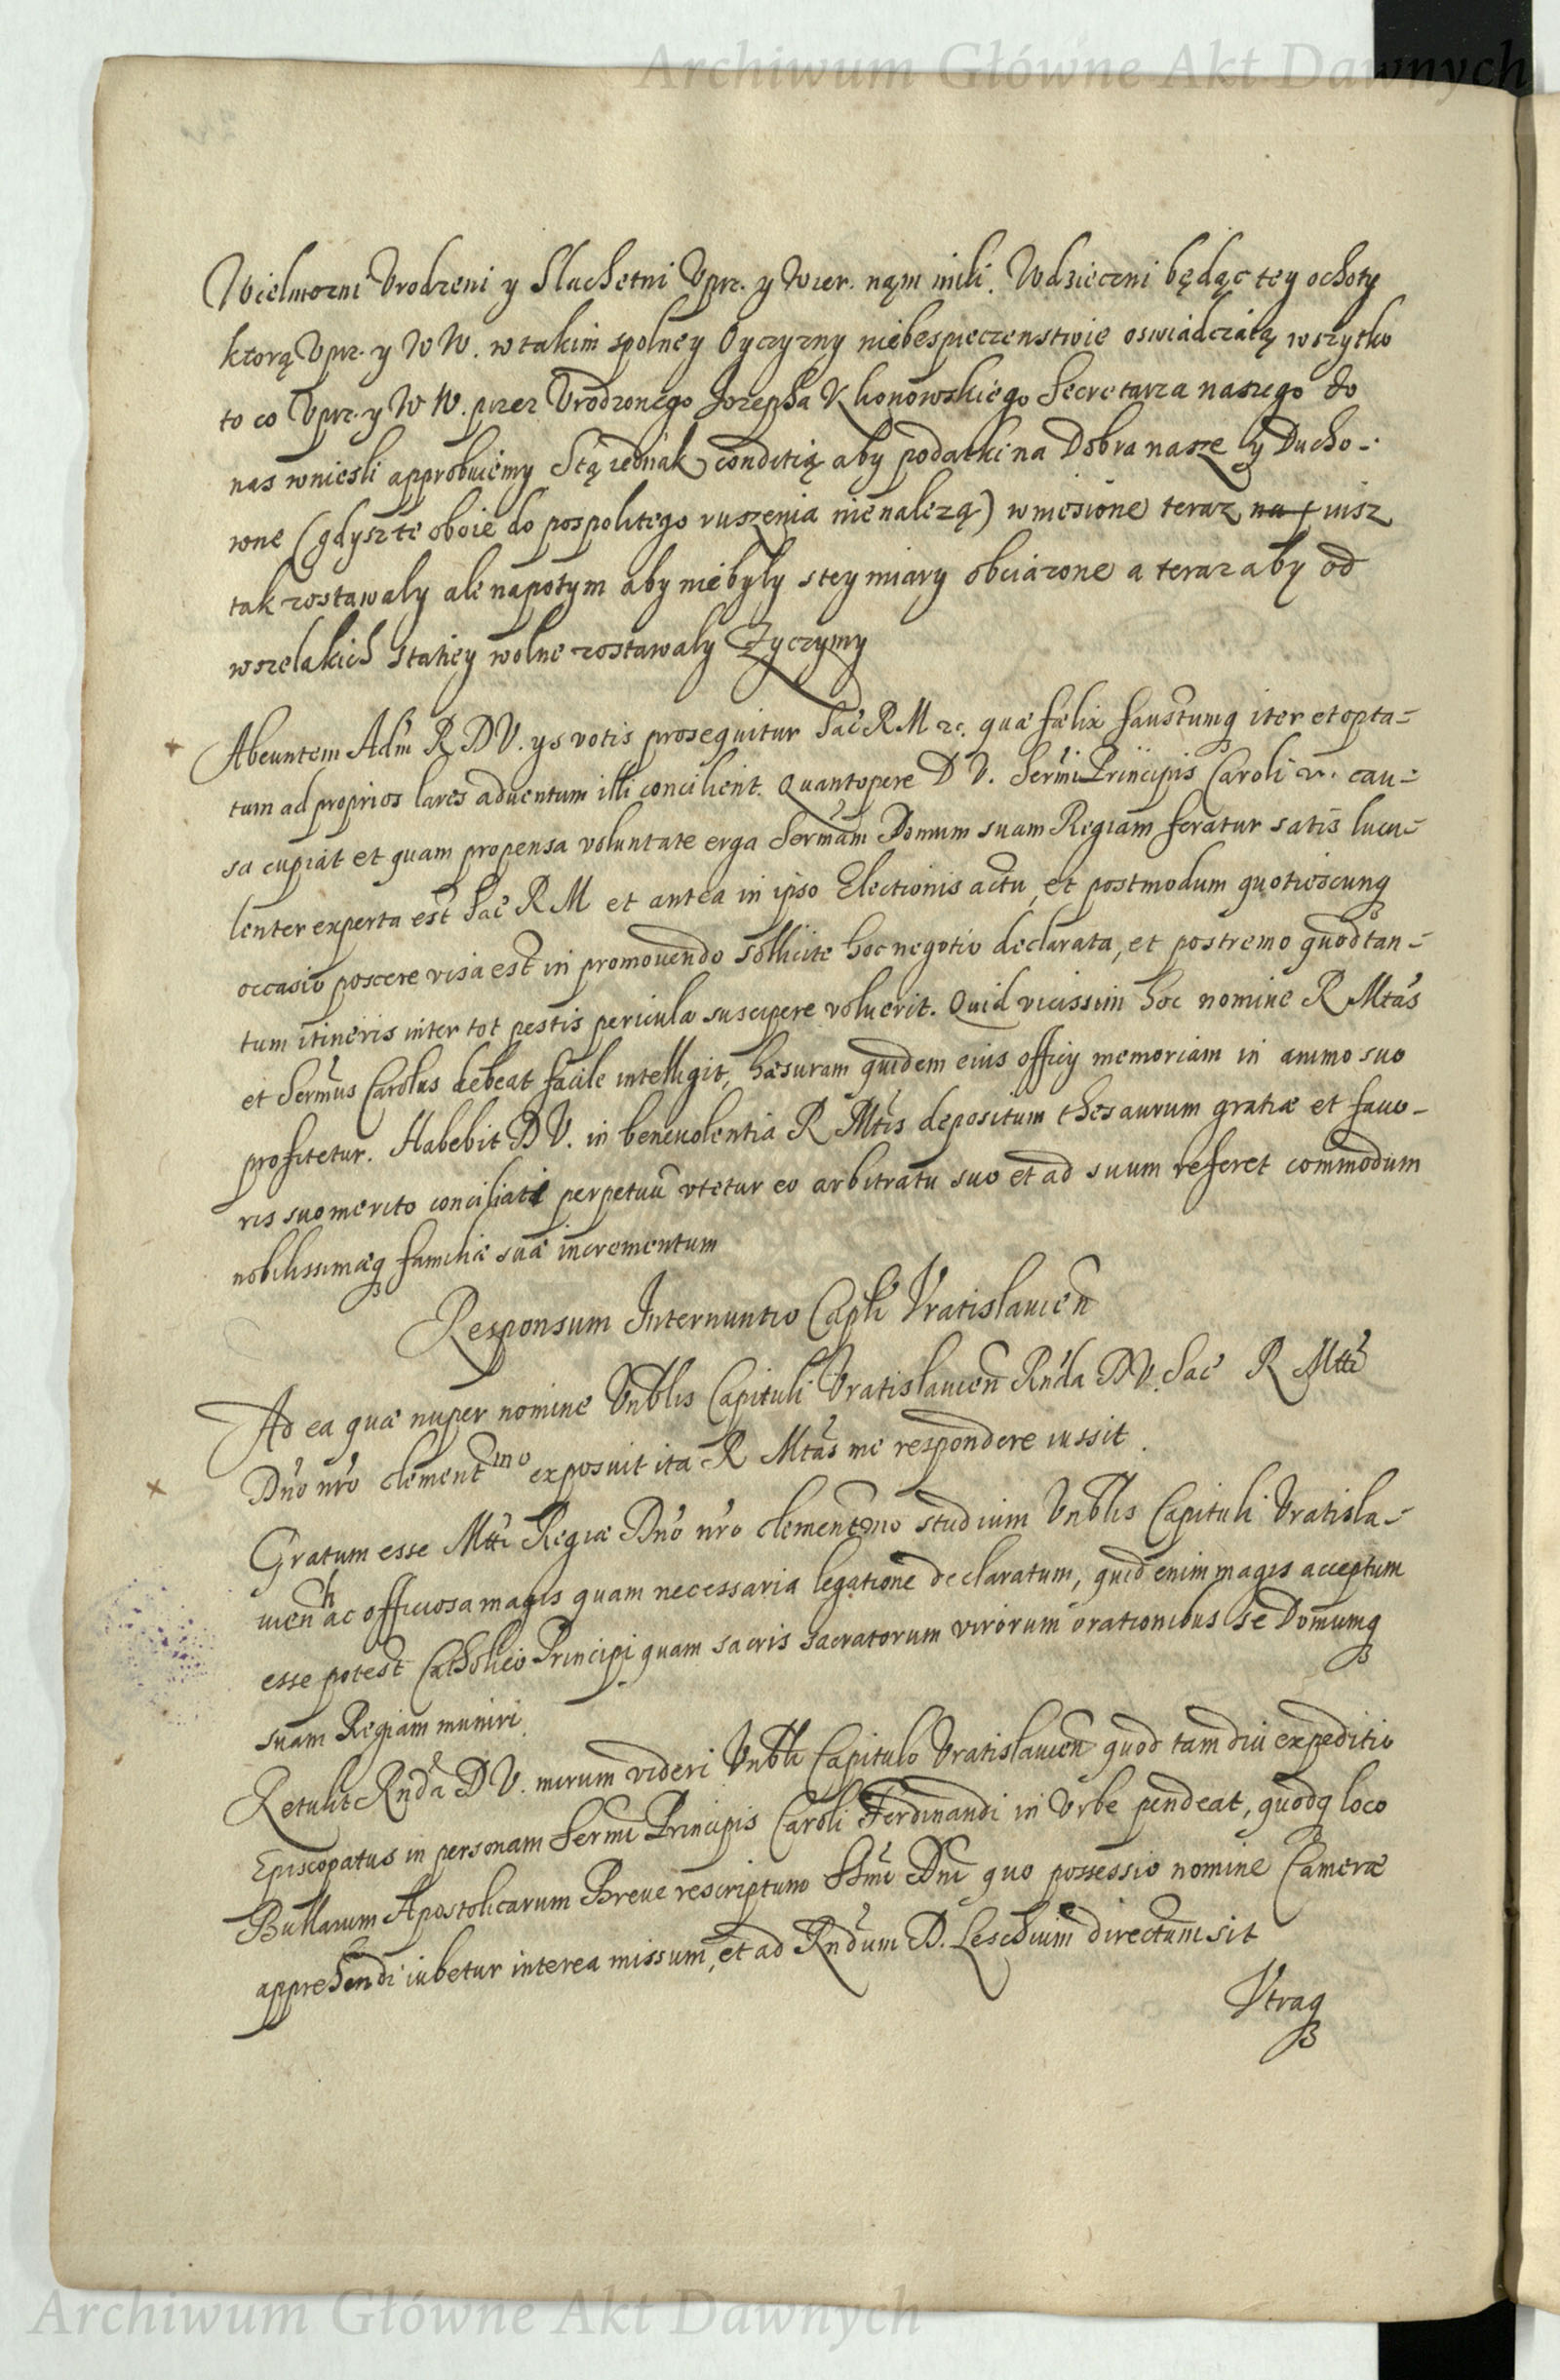 Archiwum Główne Akt Dawnych
Wielmozni Vrodzeni y Slachetni Vprz. y Wier. nąm mili. Wdzieczni będąc tey ochoty
ktorą Vprz. y W W. w takim spolney Oyczyzny niebespieczenstwie oswiadczaią wszytko
to co Vprz. y W W. przez Vrodzonego Jozepha Khonowskiego Secretarza naszego do
nas wniesli approbuiemy Stą iednak conditią aby podatki na Dobra nasze y Ducho-
wne (gdysz te oboie do pospolitego ruszenia nienalezą) wniesione teraz iusz
tak zostawaly ale napotym aby niebyly stey miary obciazone a teraz aby od
wszelakich staciey wolne zostawaly Zyczymy
Abeuntem Adm R D V. ys votis prosequitur Sac R M zc. quæ fælix faustumq iter et opta-
tum ad proprios lares aduentum illi concilient. Quantopere D V. Sermi Principis Caroli cau-
sa cupiat et quam propensa voluntate erga Sermam Domum suam Regiam feratur satis lucu-
lenter experta est Sac R M et antea in ipso Electionis actu, et postmodum quotiescunq
occasio poscere visa est in promouendo sollicite hoc negotio declarata, et postremo quod tan-
tum itineris inter tot pestis pericula suscipere voluerit. Quid vicissim hoc nomine R Mtas
et Sermus Carolus debeat facile intelligit, hæsuram quidem eius officy memoriam in animo suo
profitetur. Habebit D V. in beneuolentia R Mtis depositum thesaurum gratiæ et fauo-
ris suo merito conciliati perpetuu vtetur eo arbitratu suo et ad suum referet commodum
nobilissimæq familiæ suæ incrementum
Responsum Internuntio Capli Vratislauien
Ad ea quæ nuper nomine Vnblis Capituli Vratislauien Rnda D V. Sac R Mtti
Dno nro clementmo exposuit ita R Mtas me respondere iussit.
Gratum esse Mtti Regiæ Dno nro clementmo studium Vnblis Capituli Vratisla-
uien hac officiosa magis quam necessaria legatione declaratum, quid enim magis acceptum
esse potest Catholico Principi quam sacris sacratorum virorum orationibus se Domumq
suam Regiam muniri.
Retulit Rnda D V. mirum videri Vnbli Capitulo Vratislauien quod tam diu expeditio
Episcopatus in personam Sermi Principis Caroli Ferdinandi in Vrbe pendeat, quodq loco
Bullarum Apostolicarum Breue rescriptum Sstmi Dni quo possessio nomine Cameræ
apprehendi iubetur interea missum, et ad Rndum D. Leschium directum sit
Vtraq
Archiwum Główne Akt Dawnych